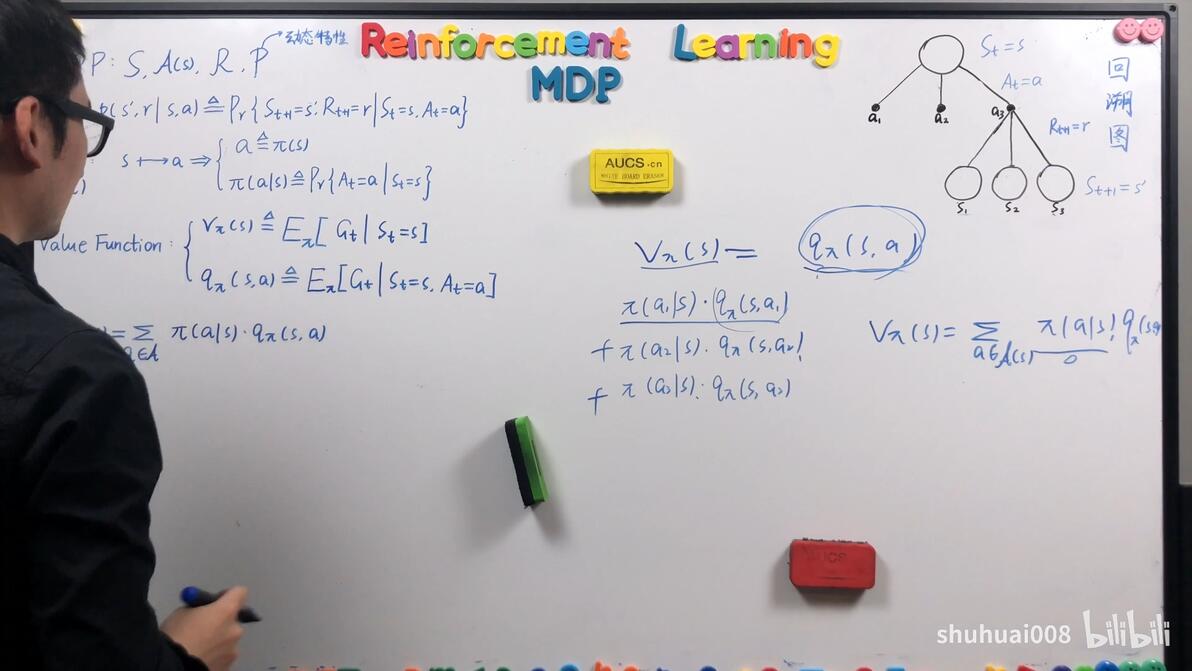 Reinforcement Learning
MDP
P: S, A(s), R, P → 动态特性
p(s',r|s,a) ≜ Pr{S_{t+1}=s', R_{t+1}=r | S_t=s, A_t=a}
s ↦ a ⇒ { a ≜ π(s)
π(a|s) ≜ Pr{A_t=a | S_t=s}
Value Function: { V_π(s) ≜ E_π[G_t | S_t=s]
q_π(s,a) ≜ E_π[G_t | S_t=s, A_t=a]
= Σ_{a∈A} π(a|s)·q_π(s,a)
AUCS.cn
WHITE BOARD ERASER
V_π(s) = q_π(s,a)
π(a₁|s)·q_π(s,a₁)
+ π(a₂|s)·q_π(s,a₂)
+ π(a₃|s)·q_π(s,a₃)
S_t=s
A_t=a
a₁ a₂ a₃
R_{t+1}=r
S_{t+1}=s'
s₁ s₂ s₃
回溯图
V_π(s) = Σ_{a∈A(s)} π(a|s) q_π(s,a
AUCS
shuhuai008 bilibili